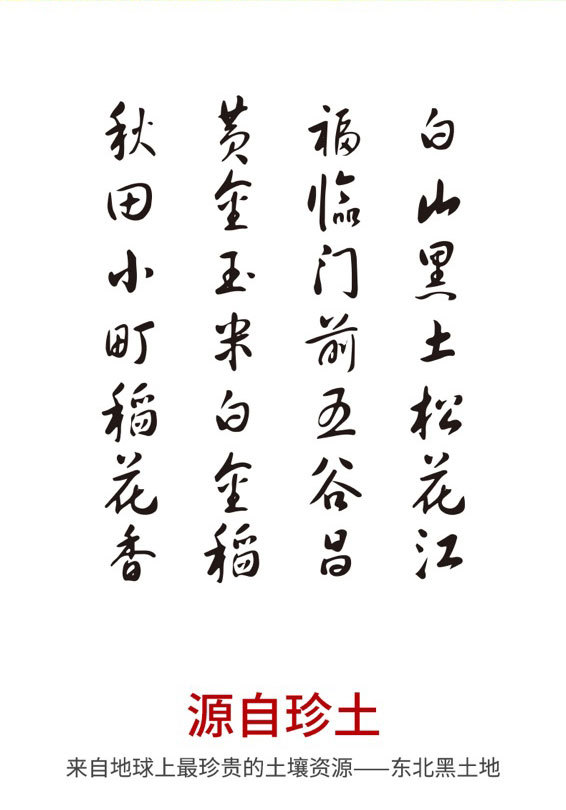 白山黑土松花江
福临门前五谷昌
黄金玉米白金稻
秋田小町稻花香
源自珍土
来自地球上最珍贵的土壤资源——东北黑土地